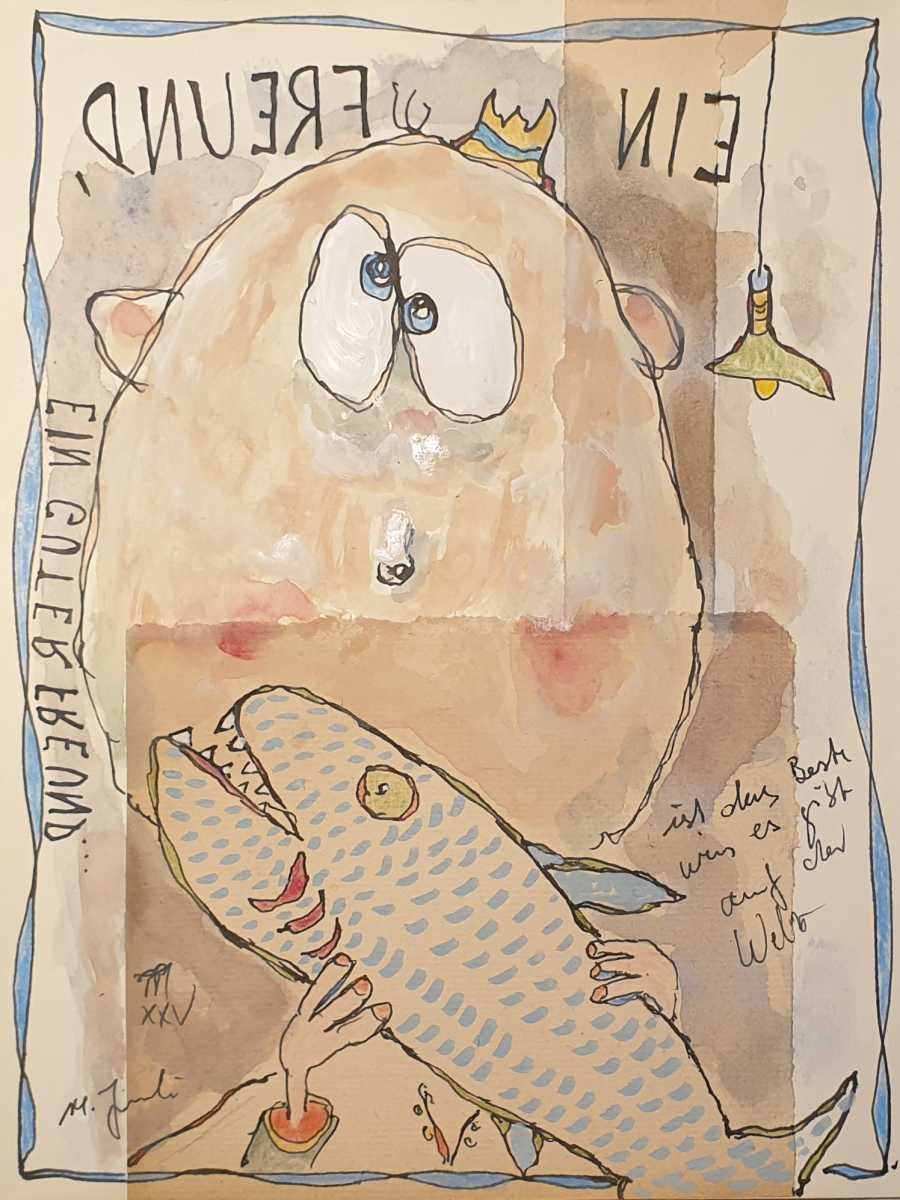 EIN FREUND,
EIN GUTER FREUND...
ist das Beste
was es gibt
auf der
Welt
XXV